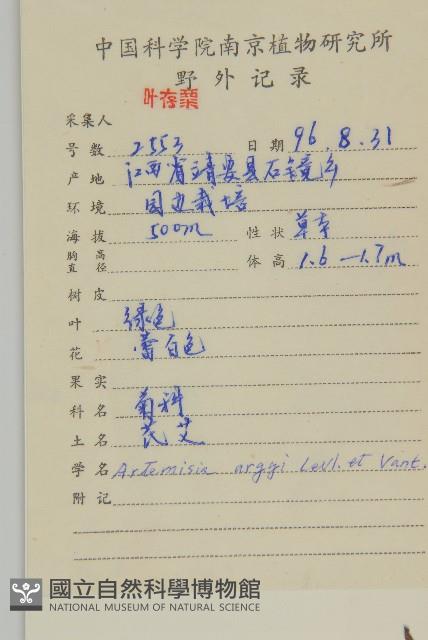 中国科学院南京植物研究所
野外记录
采集人 叶存粟
号数 2553 日期 96.8.31
产地 江西省靖安县石镜
环境 园边栽培
海拔 500m 性状 草本
胸高直径 体高 1.6—1.7m
树皮
叶 绿色
花 蕾白色
果实
科名 菊科
土名 艾
学名 Artemisia argyi Levl. et Vant.
附记
國立自然科學博物館
NATIONAL MUSEUM OF NATURAL SCIENCE